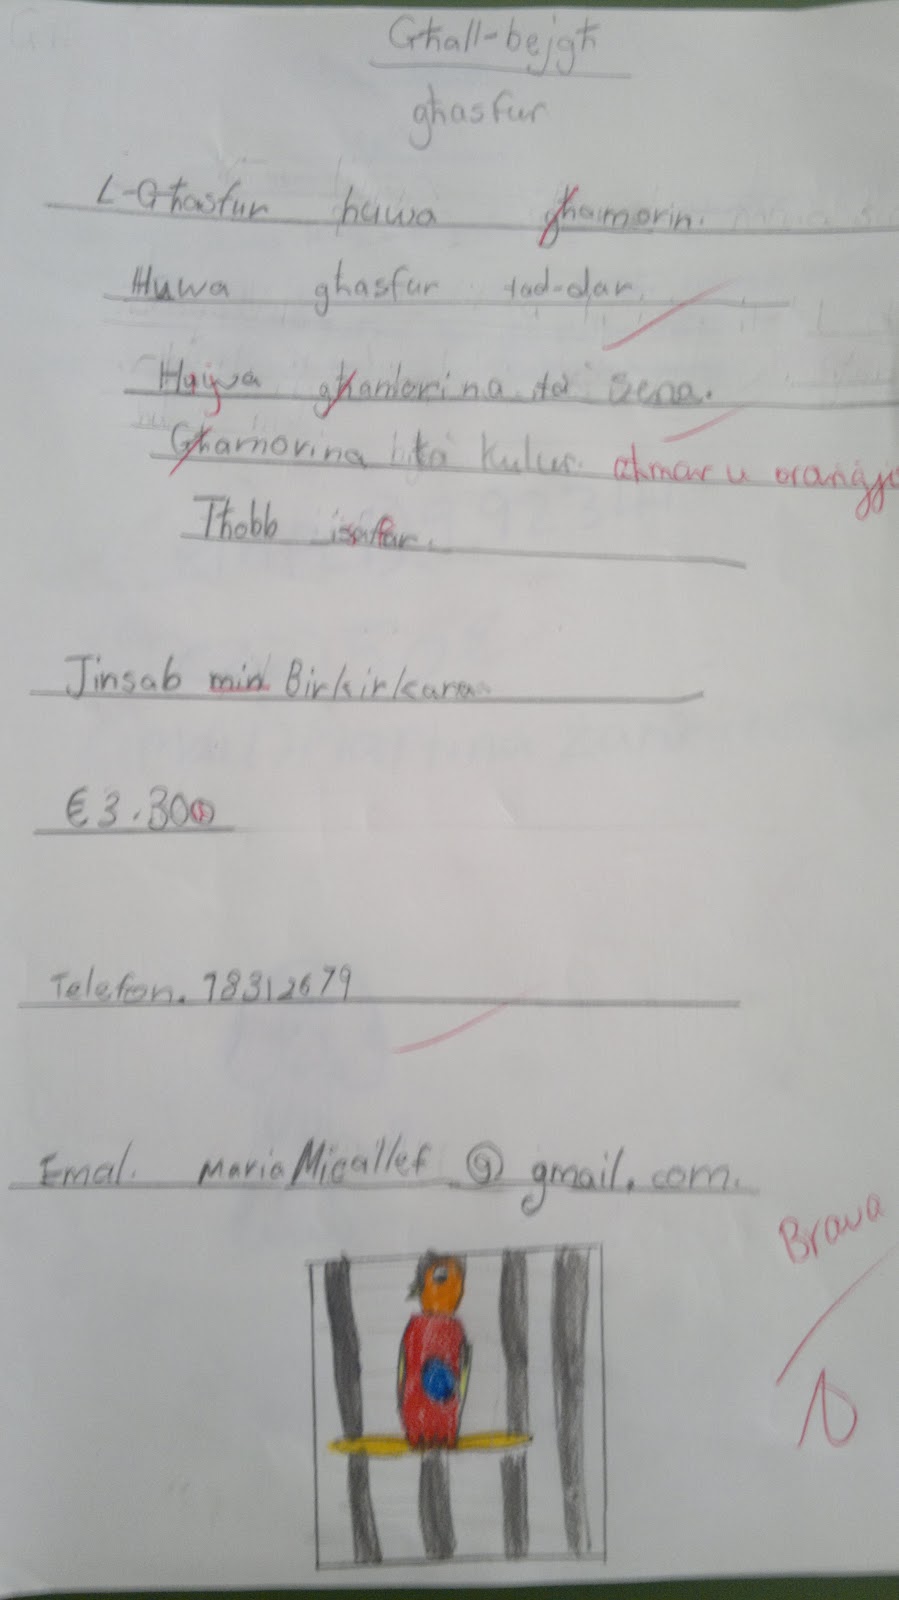 Għall-bejgħ
għasfur
L-Għasfur huwa għamorin.
Huwa għasfur tad-dar.
għamorina ta' sena.
Għamorina hija kulur. aħmar u oranġjo
Tħobb
Jinsab min Birkirkara.
€3.300
Telefon. 98312679
Emal. maria Micallef @ gmail.com.
Brava